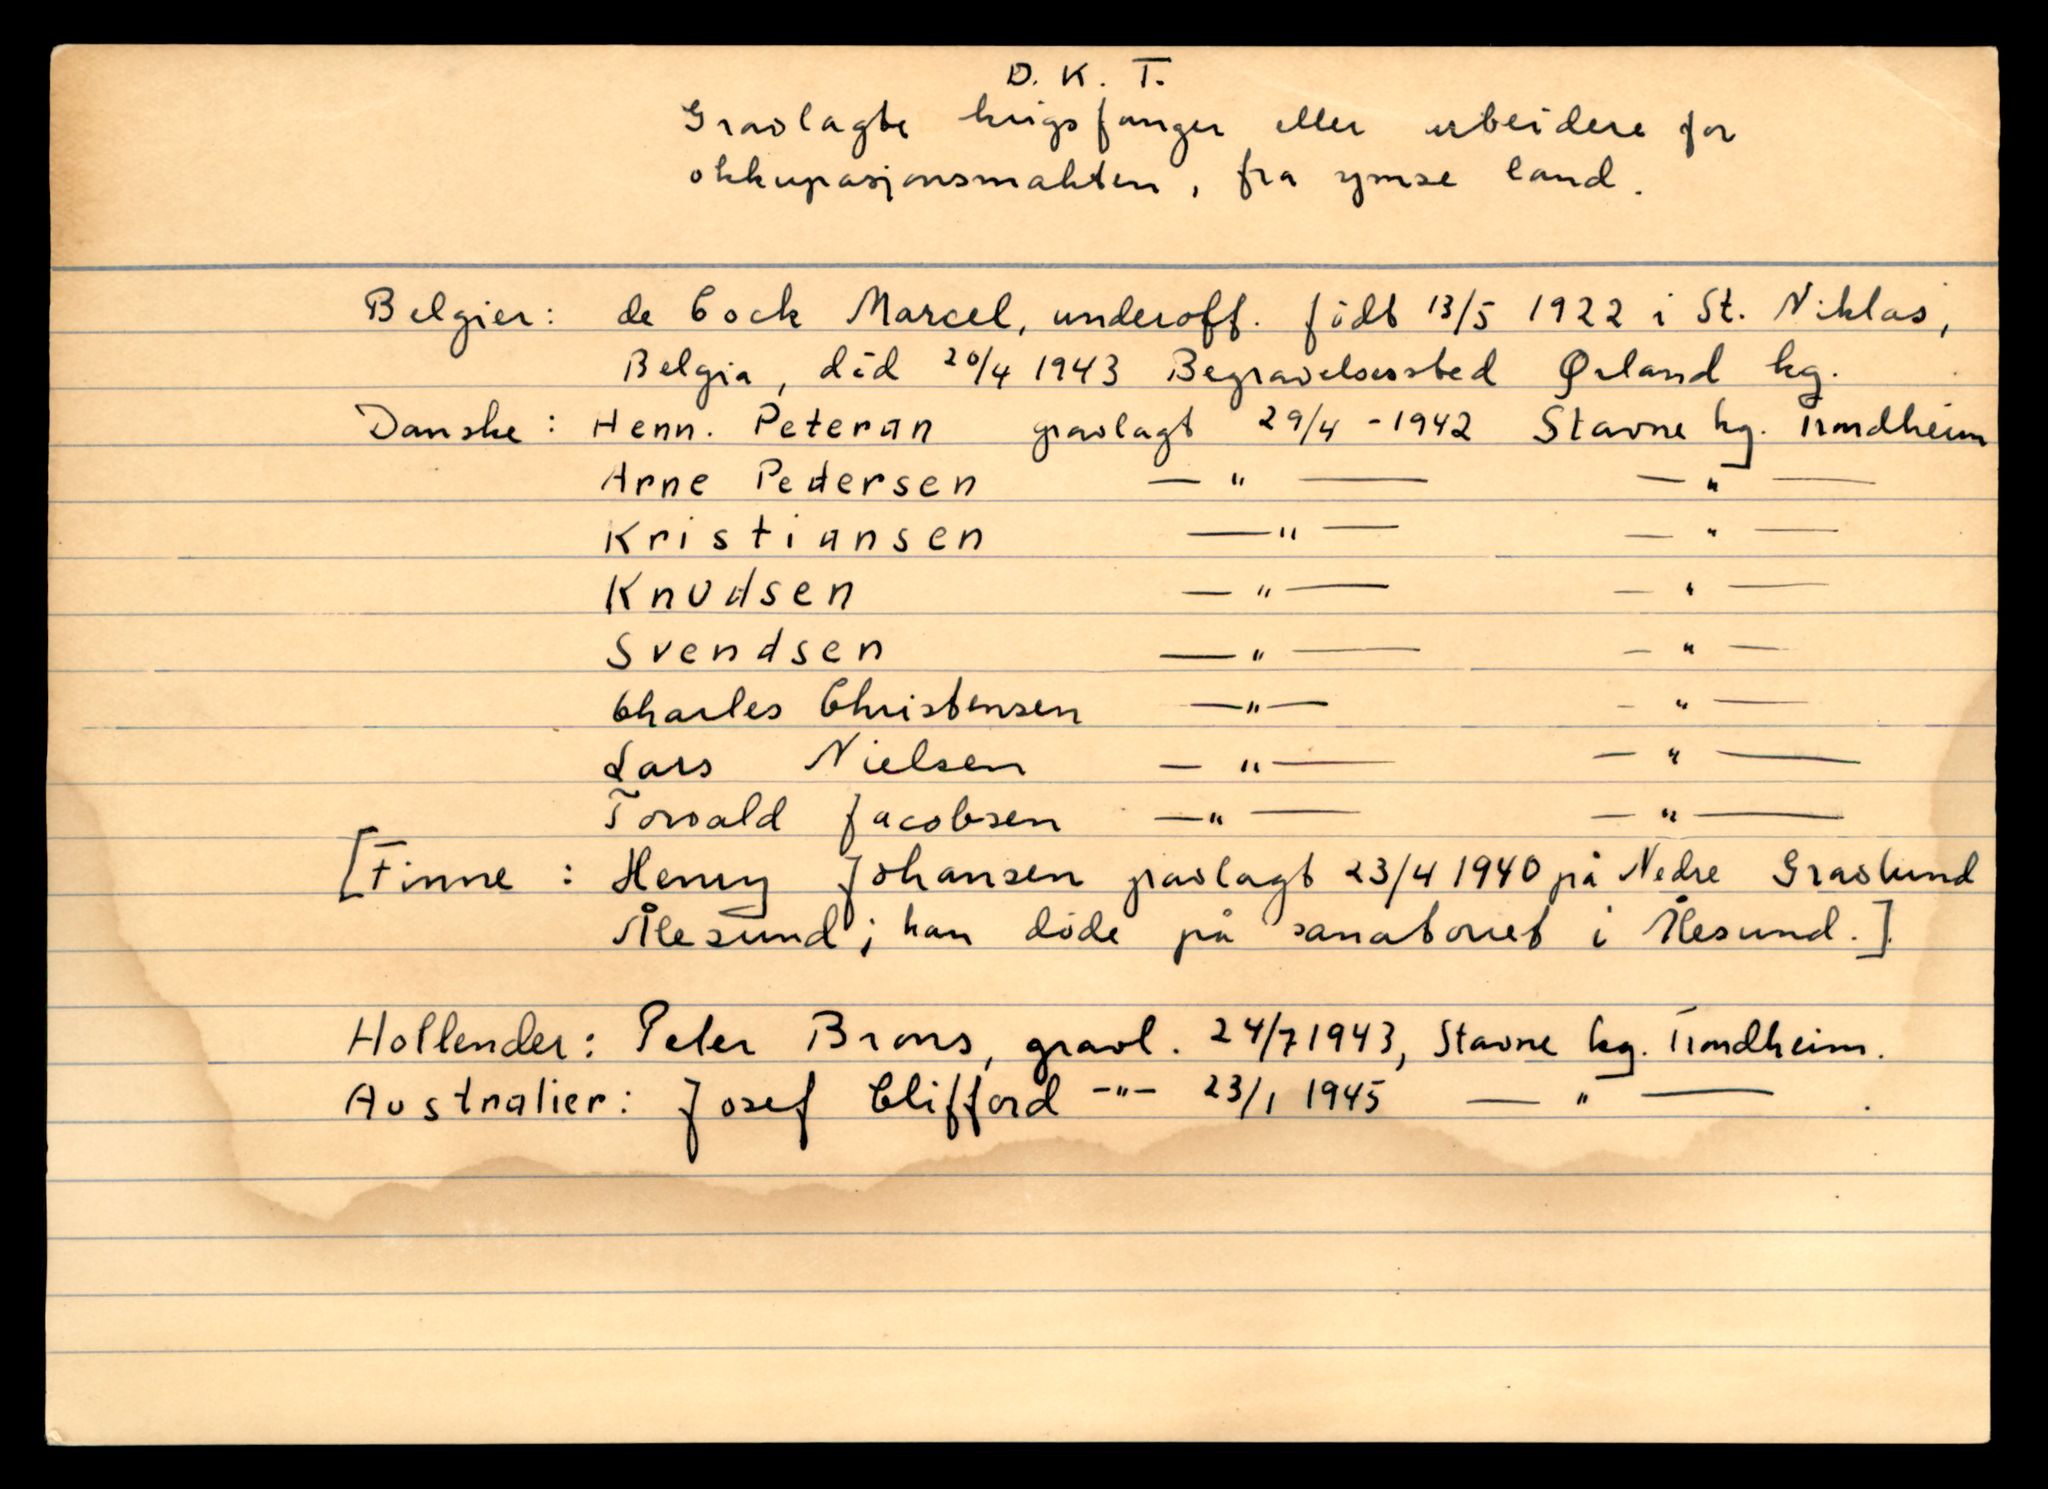 D. K. T.
Gravlagte krigsfanger eller arbeidere for
okkupasjonsmakten, fra ymse land.
Belgier: de Cock Marcel, underoff. født 13/5 1922 i St. Niklas,
Belgia, død 20/4 1943 Begravelsessted Ørland kg.
Danske: Henn. Peteran gravlagt 29/4 - 1942 Stavne kg. Trondheim
Arne Pedersen — " — — " —
Kristiansen — " — — " —
Knudsen — " — — " —
Svendsen — " — — " —
Charles Christensen — " — — " —
Lars Nielsen — " — — " —
Torvald Jacobsen — " — — " —
[Finne: Henry Johansen gravlagt 23/4 1940 på Nedre Gravlund
Ålesund; han døde på sanatoriet i Ålesund.]
Hollender: Peter Brons, gravl. 24/7 1943, Stavne kg. Trondheim.
Australier: Josef Clifford -"- 23/1 1945 — " — .